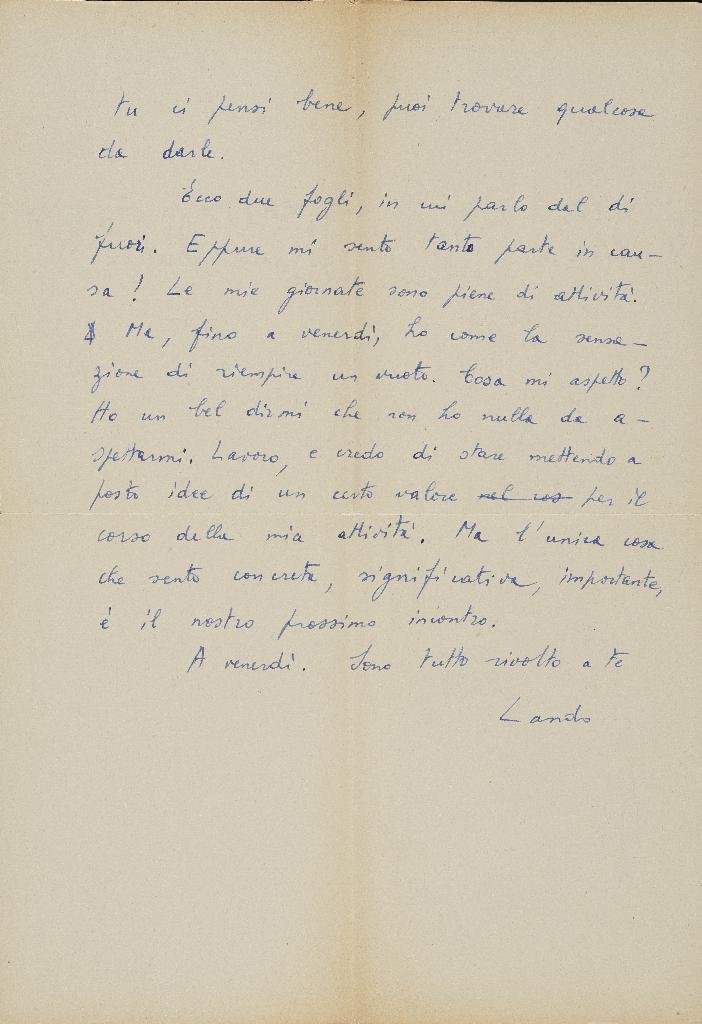 tu ci pensi bene, puoi trovare qualcosa
da darle.
Ecco due fogli, in cui parlo dal di
fuori. Eppure mi sento tanto parte in cau-
sa! Le mie giornate sono piene di attività.
Ma, fino a venerdì, ho come la sensa-
zione di riempire un vuoto. Cosa mi aspetto?
Ho un bel dirmi che non ho nulla da a-
spettarmi. Lavoro, e credo di stare mettendo a
posto idee di un certo valore nel cos per il
corso della mia attività. Ma l'unica cosa
che sento concreta, significativa, importante,
è il nostro prossimo incontro.
A venerdì. Sono tutto rivolto a te
Lando